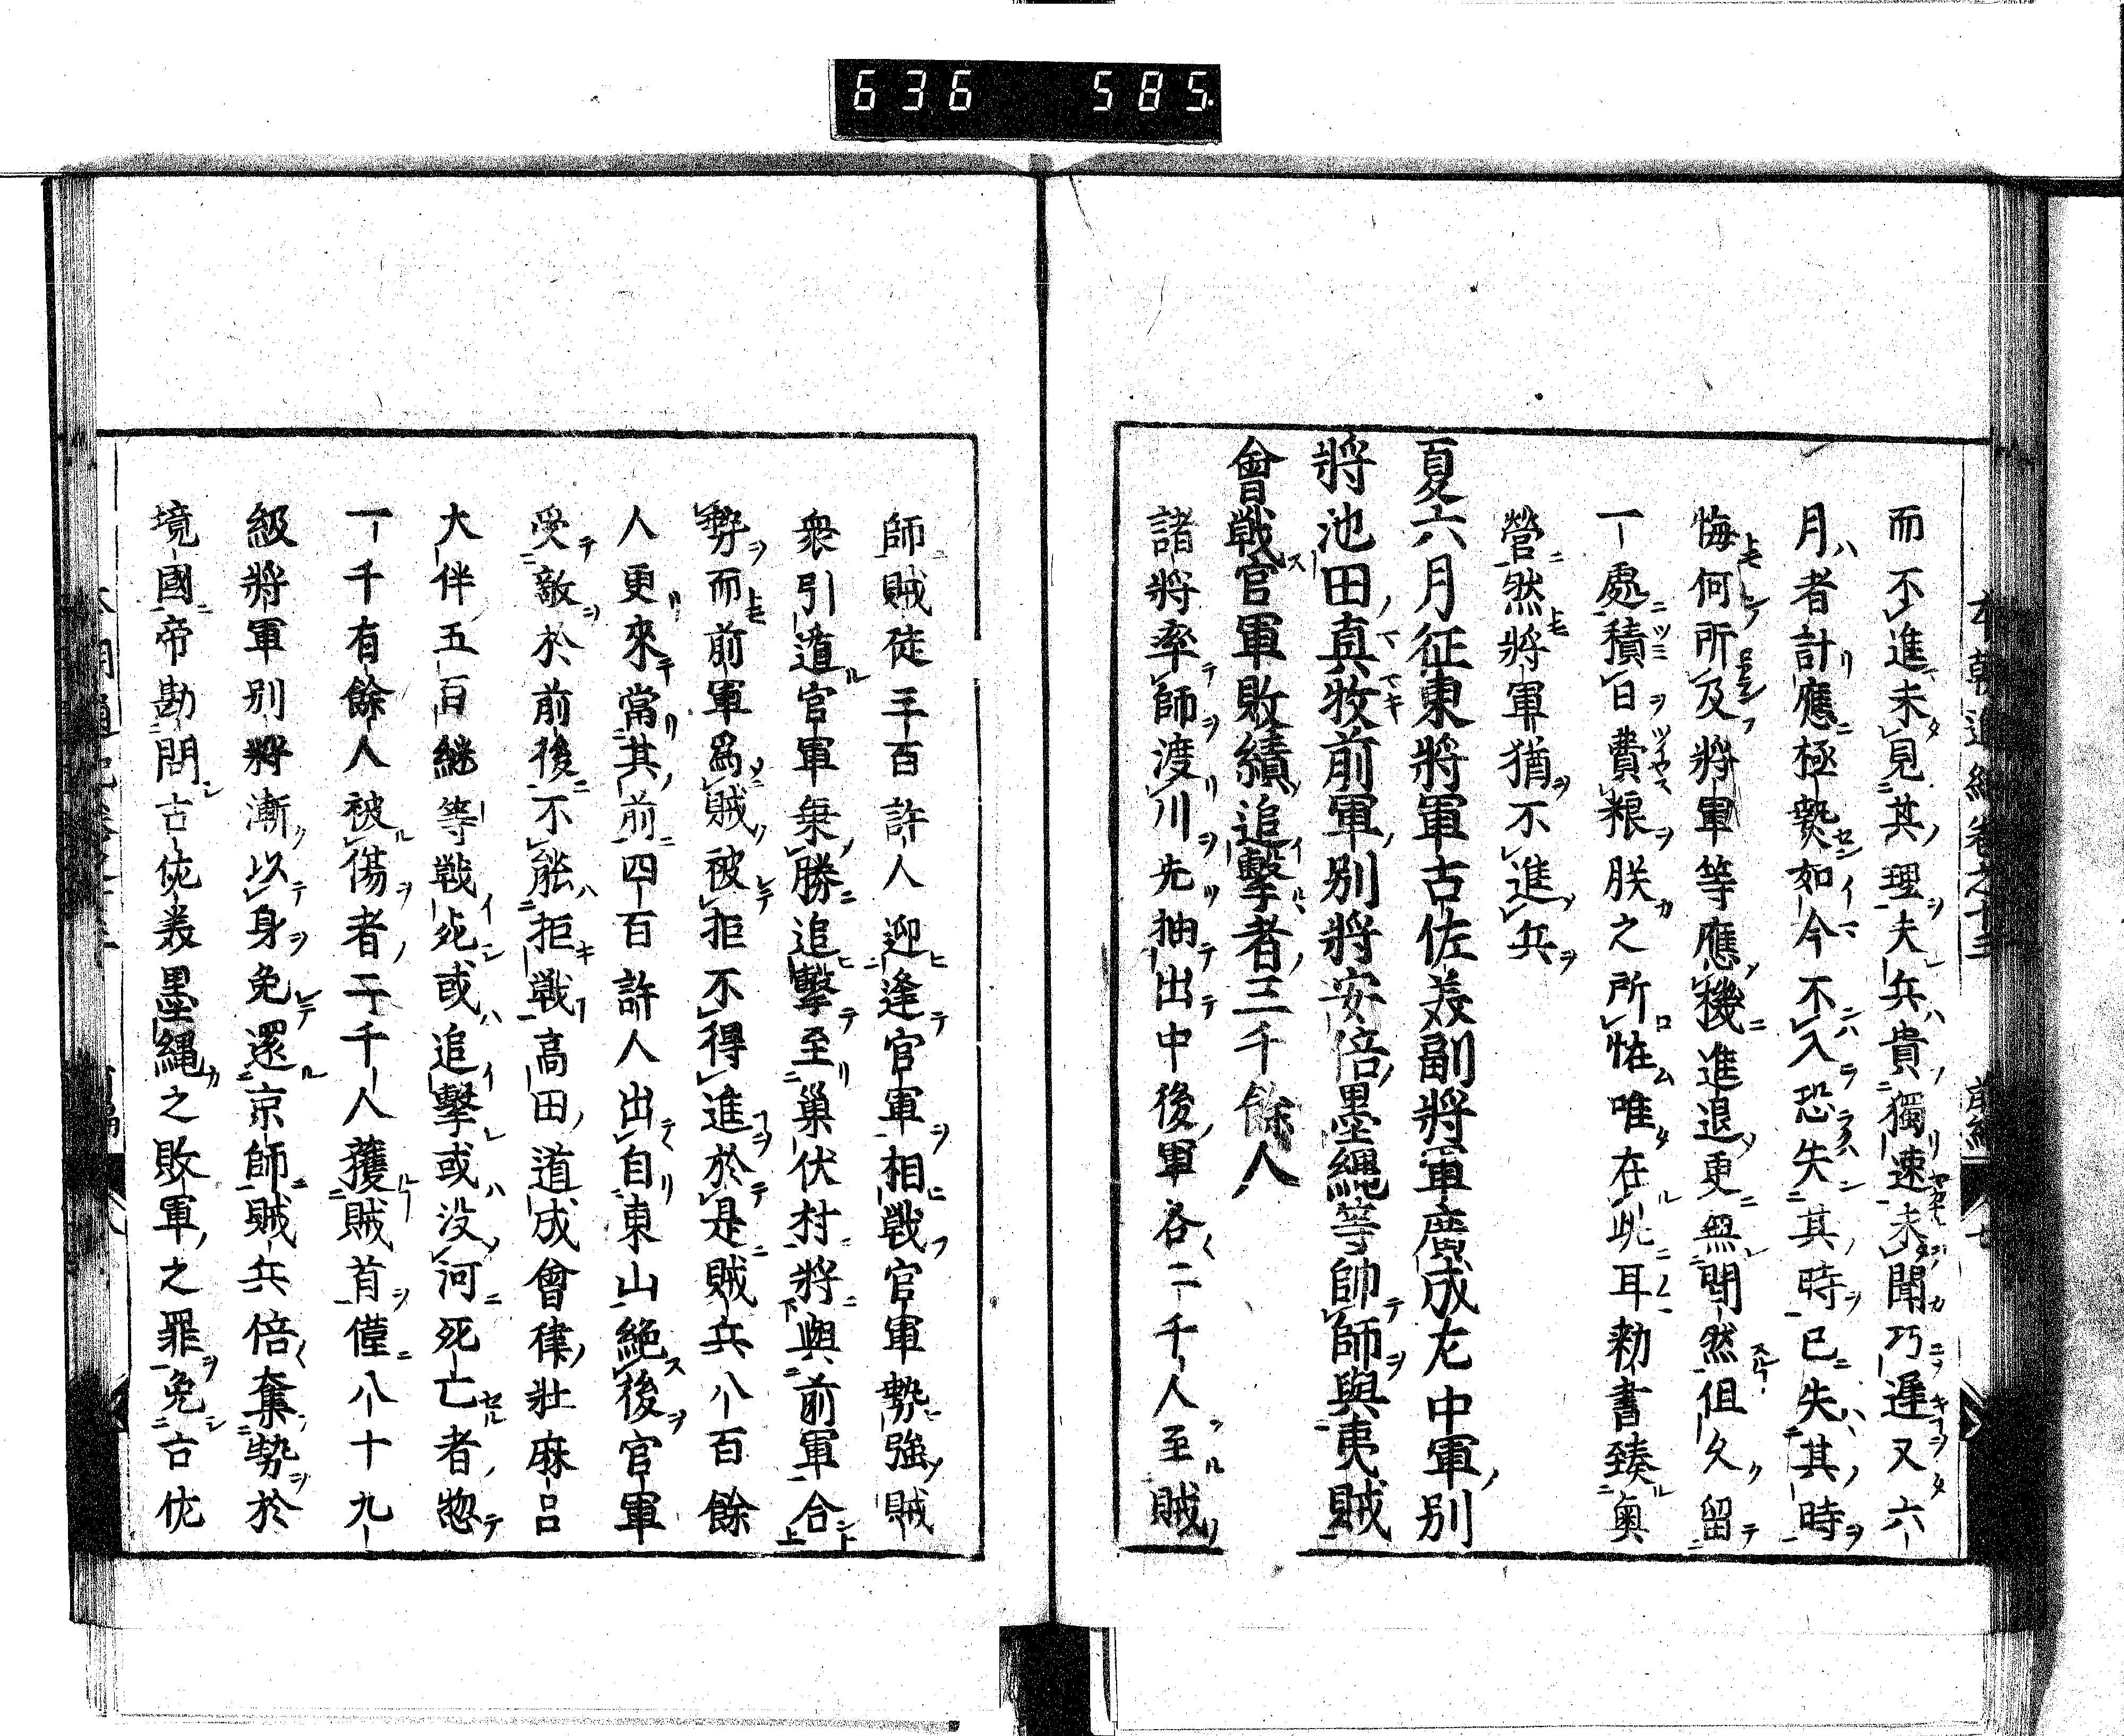 636 585
而不進未見其理夫兵貴獨速未聞巧遲又六
月者計應極熱如今不入恐失其時已失其時
悔何所及將軍等應機進退更無間然但久留
一處積日費粮朕之所恠唯在此耳勅書臻奥
營然將軍猶不進兵
夏六月征東將軍古佐美副將軍廣成左中軍別
將池田真牧前軍別將安倍墨繩等帥師與夷賊
會戰官軍敗績追擊者三千餘人
諸將率師渡川先抽出中後軍各二千人至賊
師賊徒三百許人迎逢官軍相戰官軍勢強賊
衆引遁官軍乗勝追擊至巢伏村將與前軍合
勢而前軍爲賊被拒不得進於是賊兵八百餘
人更來當其前四百許人出自東山絶後官軍
受敵於前後不能拒戰高田道成會律壯麻呂
大伴五百継等戰死或追擊或没河死亡者惣
一千有餘人被傷者二千人獲賊首僅八十九
級將軍別將漸以身免還京師賊兵倍奮勢於
境國帝勘問古佐美墨縄之敗軍之罪免古佐